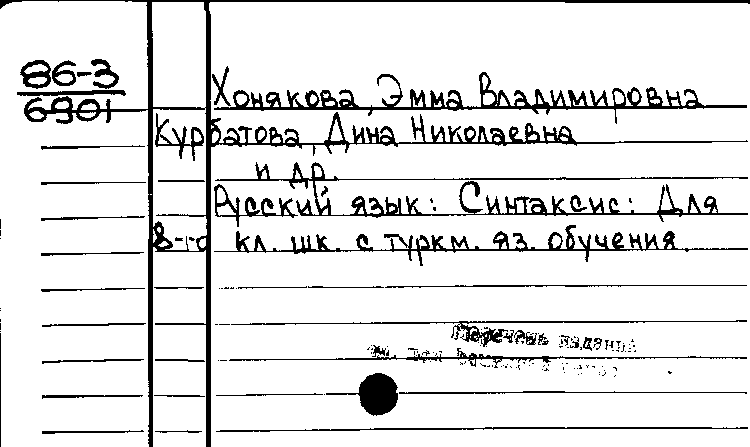 86-3
6901
Хонякова, Эмма Владимировна
Курбатова, Дина Николаевна
и др.
Русский язык: Синтаксис: Для
8-го кл. шк. с туркм. яз. обучения.
Перечень издания